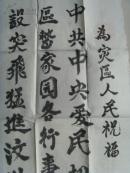 为灾區人民祝福
中共中央爱民
區誓家园各行事
設突飛猛進汶